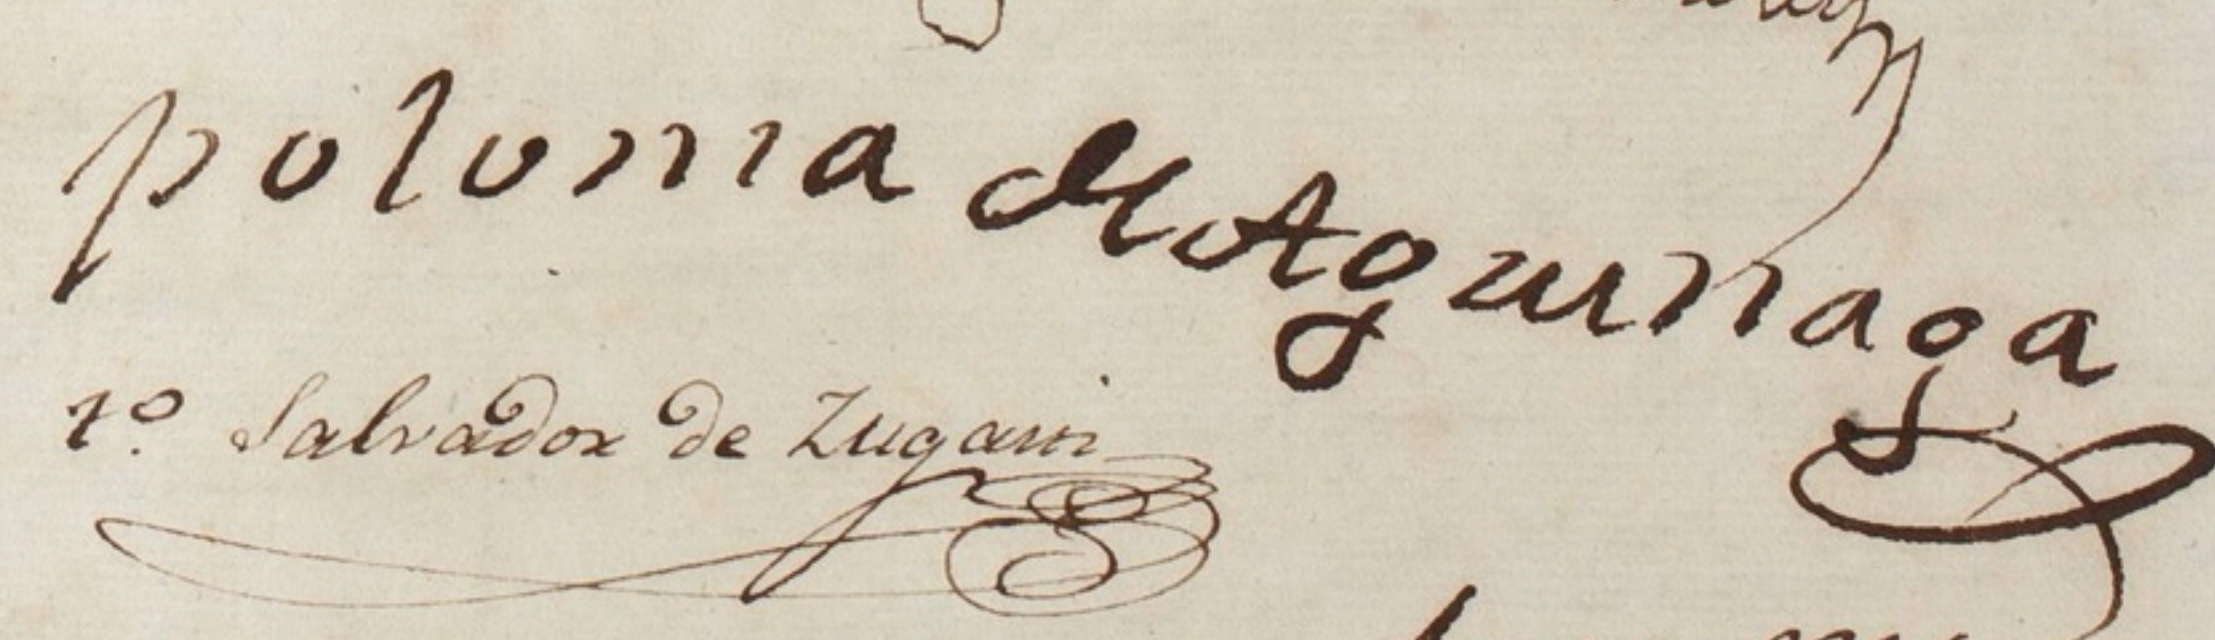 polonia de Aguinaga
to. Salvador de Zugarri